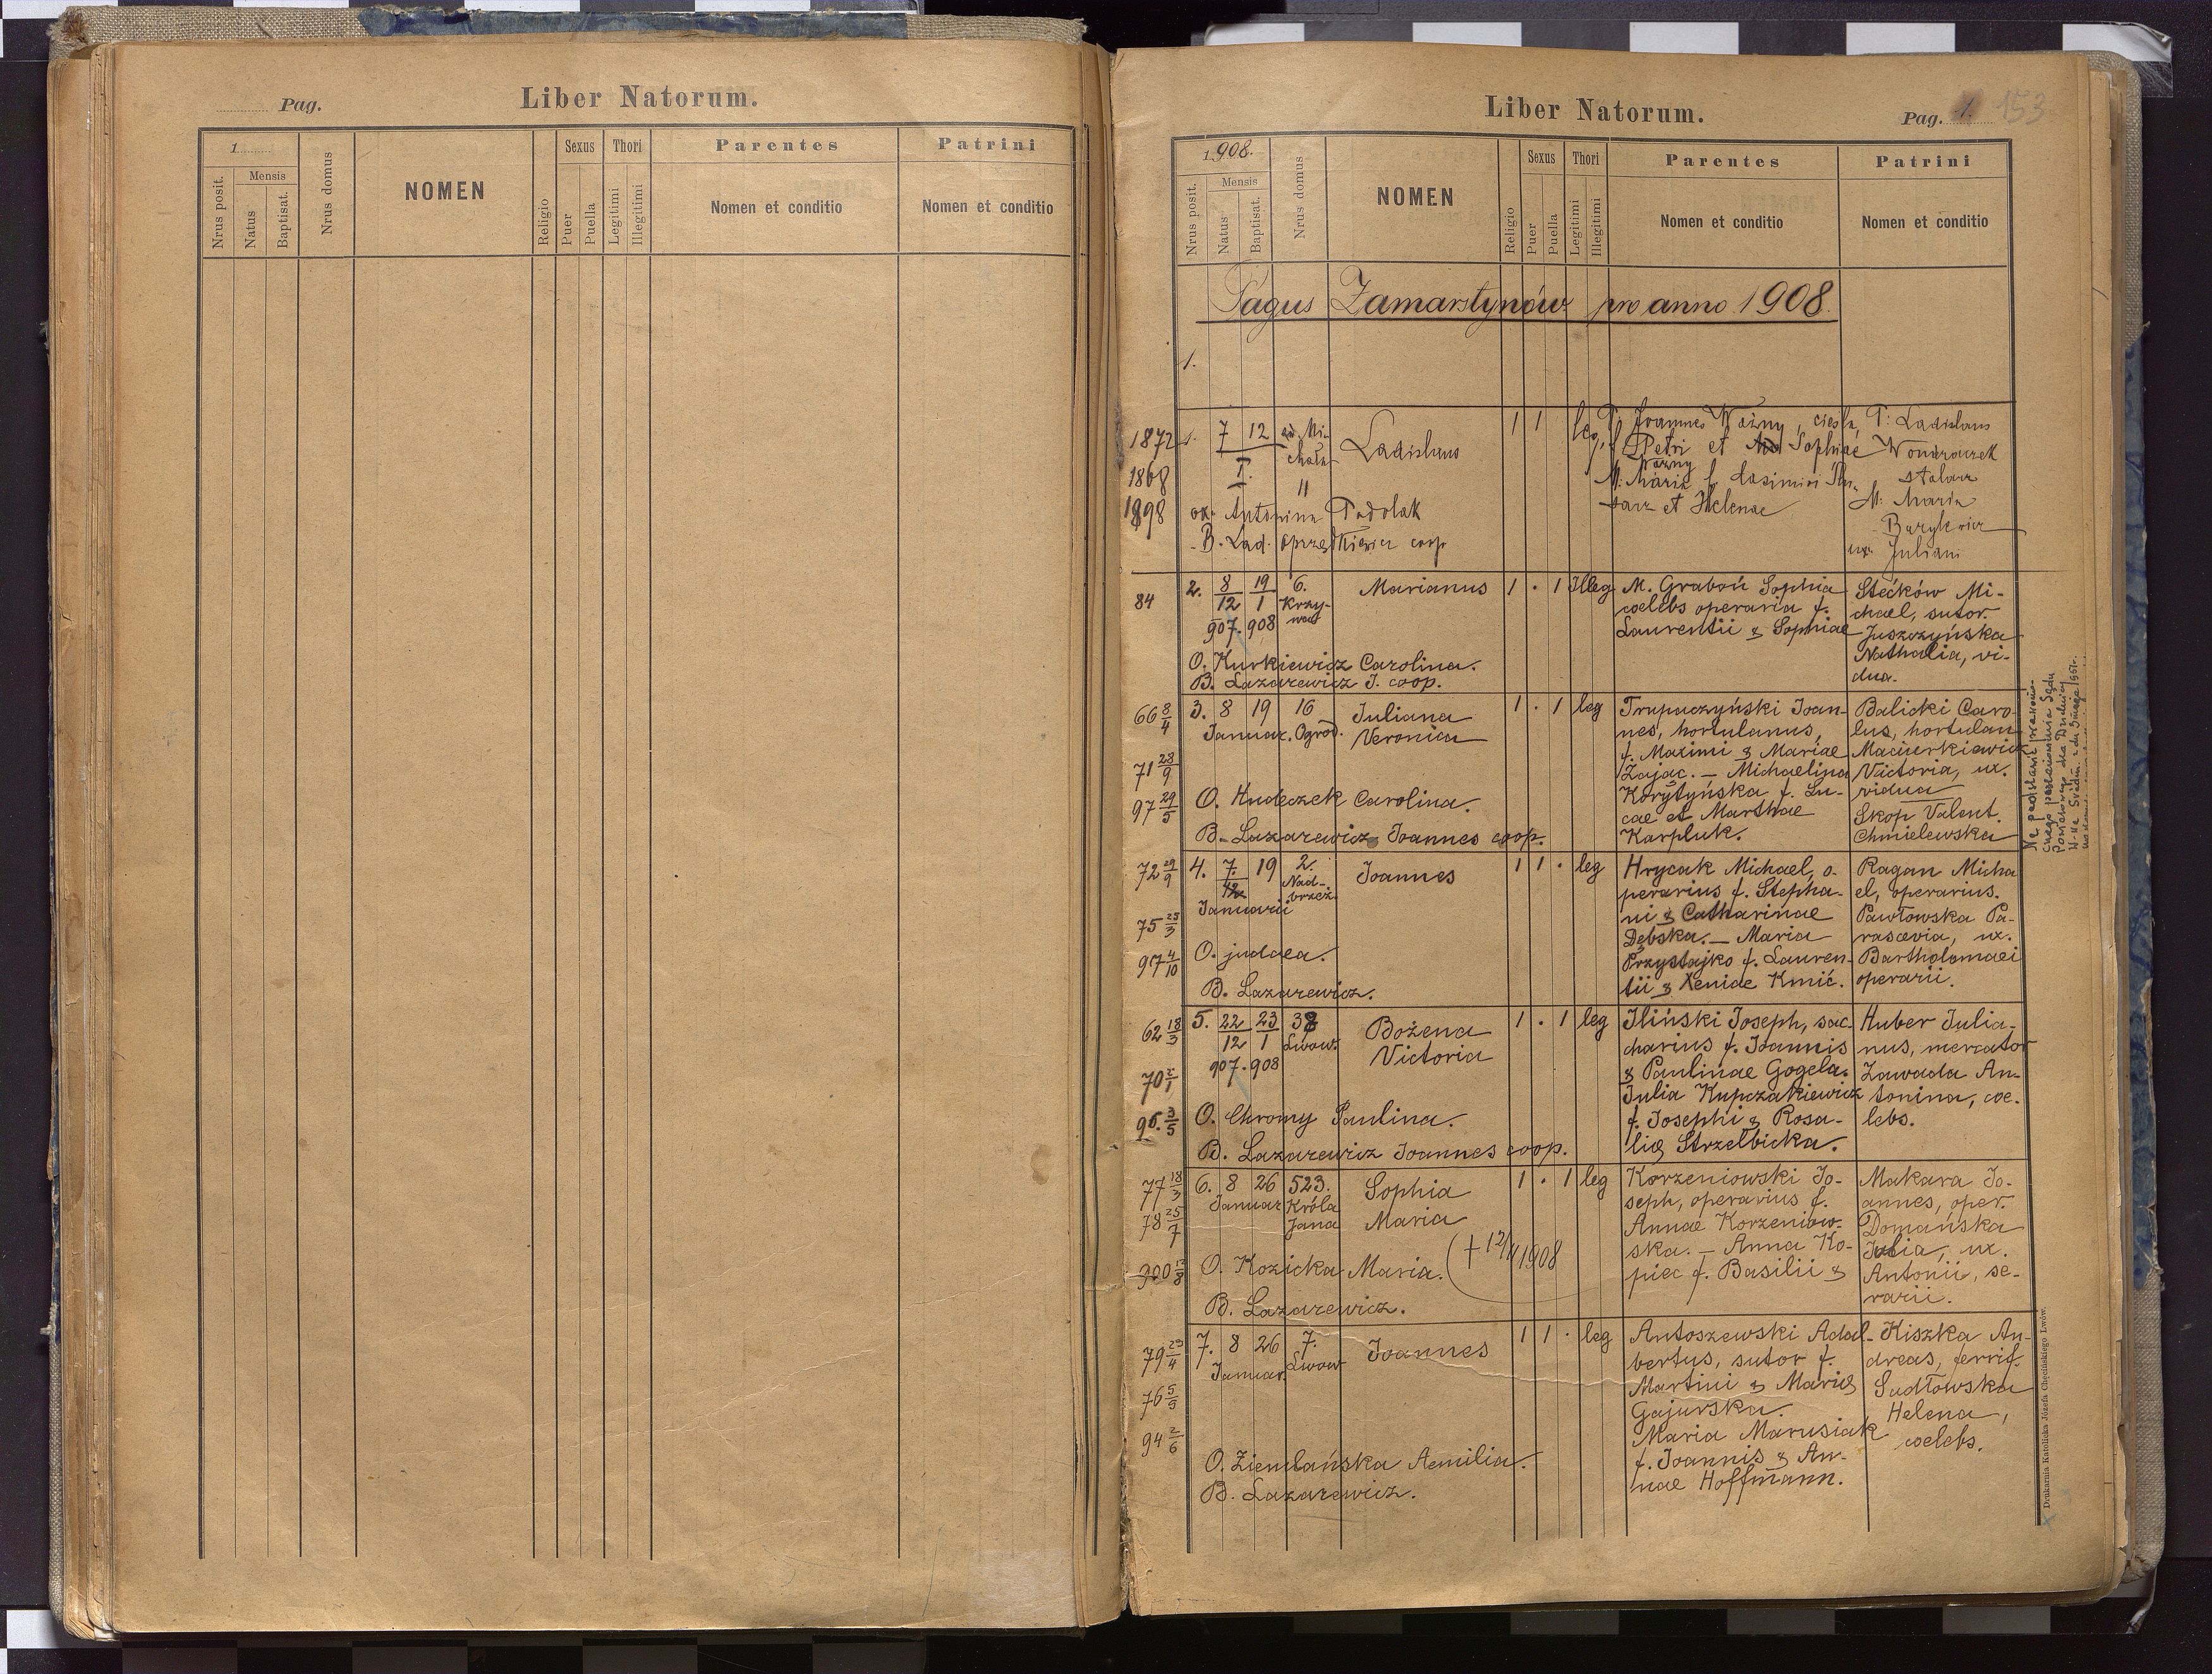 Pag.
Liber Natorum.
1
Nrus posit.
Mensis
Natus
Baptisat.
Nrus domus
NOMEN
Religio
Sexus
Puer
Puella
Thori
Legitimi
Illegitimi
Parentes
Nomen et conditio
Patrini
Nomen et conditio
Liber Natorum.
Pag. 1. 153
1908.
Nrus posit.
Mensis
Natus
Baptisat.
Nrus domus
NOMEN
Religio
Sexus
Puer
Puella
Thori
Legitimi
Illegitimi
Parentes
Nomen et conditio
Patrini
Nomen et conditio
Pagus Zamarstynów pro anno 1908.
1.
1872
1868
1898
1. 7 12
I.
Ladislaus
1 1 leg.
P: Joannes Ważny, cieśla,
f. Petri et Sophiae
Ważny
M: Maria f. Casimiri
et Helenae
P: Ladislaus
Wondraczek
stolarz
M: Maria
ux. Juliani
ox. Antonina Podolak
B. Lad. coop
84
2. 8 19 6.
12 1 Krzy-
907. 908 wa
Marianus
1 . 1 Illeg
M. Graboń Sophia
coelebs operaria f.
Laurentii & Sophiae
Stećków Mi-
chael, sutor.
Juszczyńska
Nathalia, vi-
dua.
O. Kurkiewicz Carolina.
B. Lazarewicz J. coop.
66 8/4
71 28/9
97 29/5
3. 8 19 16
Januar. Ogrod.
Juliana
Veronica
1 . 1 leg
Trupaczyński Joan-
nes, hortulanus,
f. Maximi & Mariae
Zając. — Michaelina
Korytyńska f. Lu-
cae et Marthae
Karpluk.
Balicki Caro-
lus, hortulan
Maciurkiewicz
Victoria, ux.
vidua
Skop Valent.
Chmielewska
O. Hudeczek Carolina.
B. Lazarewicz Joannes coop.
72 29/9
75 23/3
97 4/10
4. 7. 19 2.
12 Nad-
Januarii brzeż.
Joannes
1 1 . leg
Hrycak Michael, o-
perarius f. Stepha-
ni & Catharinae
Dębska. — Maria
Przystajko f. Lauren-
tii & Xeniae Kmić.
Ragan Micha
el, operarius.
Pawłowska Pa-
rascevia, ux.
Bartholomaei
operarii.
O. judaea.
B. Lazarewicz.
62 18/3
70 2/1
96. 3/5
5. 22 23 38
12 1 Lwow.
907. 908
Bożena
Victoria
1 . 1 leg
Iliński Joseph, sac-
charius f. Joannis
& Paulinae Gogela.
Julia Kupczakiewicz
f. Josephi & Rosa-
lię Strzelbicka.
Huber Julia-
nus, mercator
Zawada An-
tonina, coe-
lebs.
O. Chromy Paulina.
B. Lazarewicz Joannes coop.
77 18/3
78 25/7
900 12/8
6. 8 26 523.
Januar Króla
Jana
Sophia
Maria
1 . 1 leg
Korzeniowski Jo-
seph, operarius f.
Annae Korzeniow-
ska. — Anna Ko-
piec f. Basilii &
Makara Jo-
annes, oper.
Domańska
Julia, ux.
Antonii, se-
rarii.
O. Kozicka Maria.
(+ 12/ 1908
B. Lazarewicz.
79 23/4
76 5/9
94 2/6
7. 8 26 7.
Januar. Lwow
Joannes
1 1 . leg
Antoszewski Adal-
bertus, sutor f.
Martini & Marię
Gajurska.
Maria Marusiak
f. Joannis & An-
nae Hoffmann.
Kiszka An-
dreas, ferrif.
Sudłowska
Helena,
coelebs.
O. Ziemlańska Aemilia.
B. Lazarewicz.
Drukarnia Katolicka Józefa Chęcińskiego Lwów.